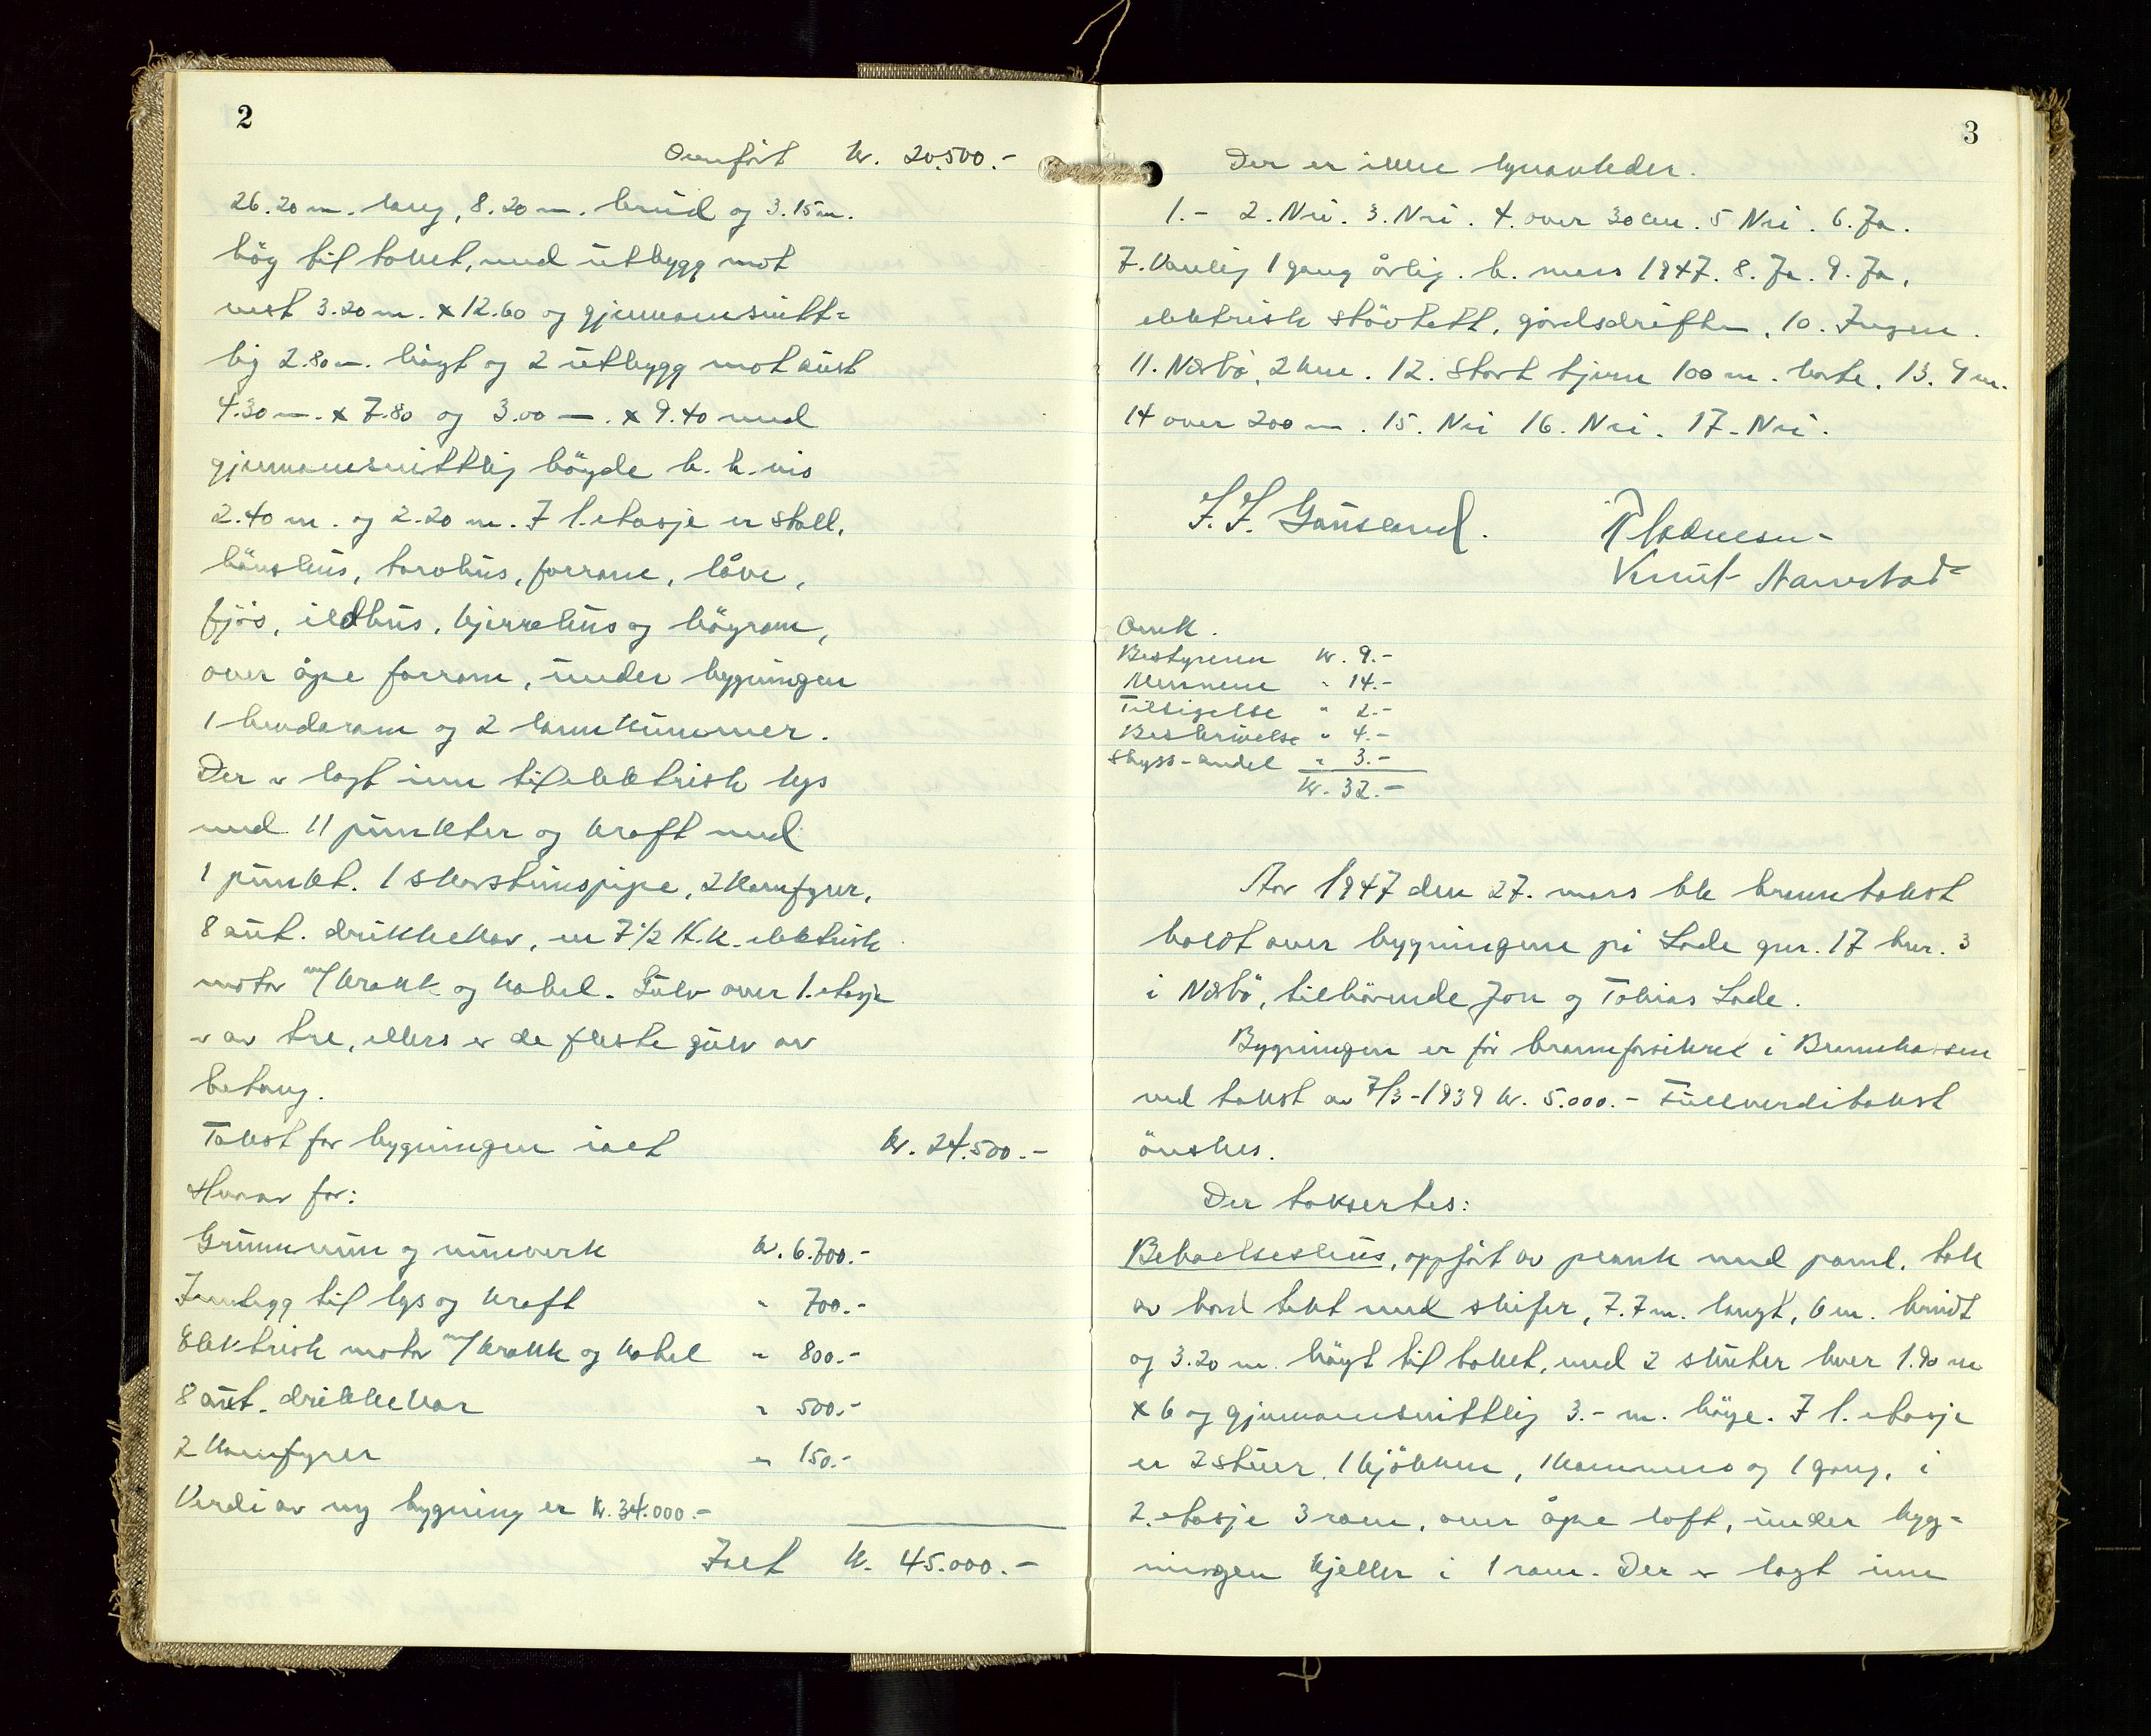 2
Overført kr. 20.500.-
26.20 m. lang, 8.20 m. breid og 3.15 m.
høg til taket, med utbygg mot
vest 3.20 m. x 12.60 og gjennomsnitt=
lig 2.80 m. høgt og 2 utbygg mot aust
4.30 m. x 7.80 og 3.00 m. x 9.40 med
gjennomsnittlig høyde h. h. vis
2.40 m. og 2.20 m. I 1. etasje er stall,
hønshus, torvhus, forrom, låve,
fjøs, ildhus, kjerrehus og høyrom,
over åpe forrom, under bygningen
1 landkummer.
Der er lagt inn til elektrisk lys
med 11 punkter og kraft med
1 punkt. 1 skorsteinspipe, 2 komfyrer,
8 aut. drikkekar, en 7 1/2 H.K. elektrisk
motor m/ krakk og kabel. Gulv over 1. etasje
er av tre, ellers er de fleste gulv av
betong.
Takst for bygningen ialt kr. 24.500.-
Herav for:
Grunnmur og murverk kr. 6.700.-
Innlegg til lys og kraft " 700.-
Elektrisk motor m/ krakk og kabel " 800.-
8 aut. drikkekar " 500.-
2 komfyrer " 150.-
Verdi av ny bygning er kr. 34.000.-
Ialt kr. 45.000.-
3
Der er ikke lynavleder.
1.- 2. Nei. 3. Nei. 4. over 30 cm. 5 Nei. 6. Ja.
7. Vanlig 1 gang årlig. h. mars 1947. 8. Ja. 9. Ja,
elektrisk støvtett, gårdsdriften. 10. Ingen.
11. Nærbø, 2 km. 12. Stort tjern 100 m. borte. 13. 9 m.
14 over 200 m. 15. Nei 16. Nei. 17. Nei.
Knut
Omk.
Bestyreren kr. 9.-
Mennene " 14.-
Tilsigelse " 2.-
Beskrivelse " 4.-
Skyss-andel " 3.-
kr. 32.-
Aar 1947 den 27. mars ble branntakst
holdt over bygningene på Lode gnr. 17 bnr. 3
i Nærbø, tilhørende Jon og Tobias Lode.
Bygningen er før brannforsikret i Brannkassen
ved takst av 7/3-1939 kr. 5.000.- Fullverditakst
ønskes.
Der taksertes:
Behaelseshus, oppført av plank med panel, tak
av bord tekt med skifer, 7.7 m. langt, 6 m. breidt
og 3.20 m. høgt til taket, med 2 skuter hver 1.90 m
x 6 og gjennomsnittlig 3.- m. høge. I 1. etasje
er 2 stuer, 1 kjøkken, 1 kammers og 1 gang, i
2. etasje 3 rom, over åpe loft, under byg=
ningen kjeller i 1 rom. Der er lagt inn